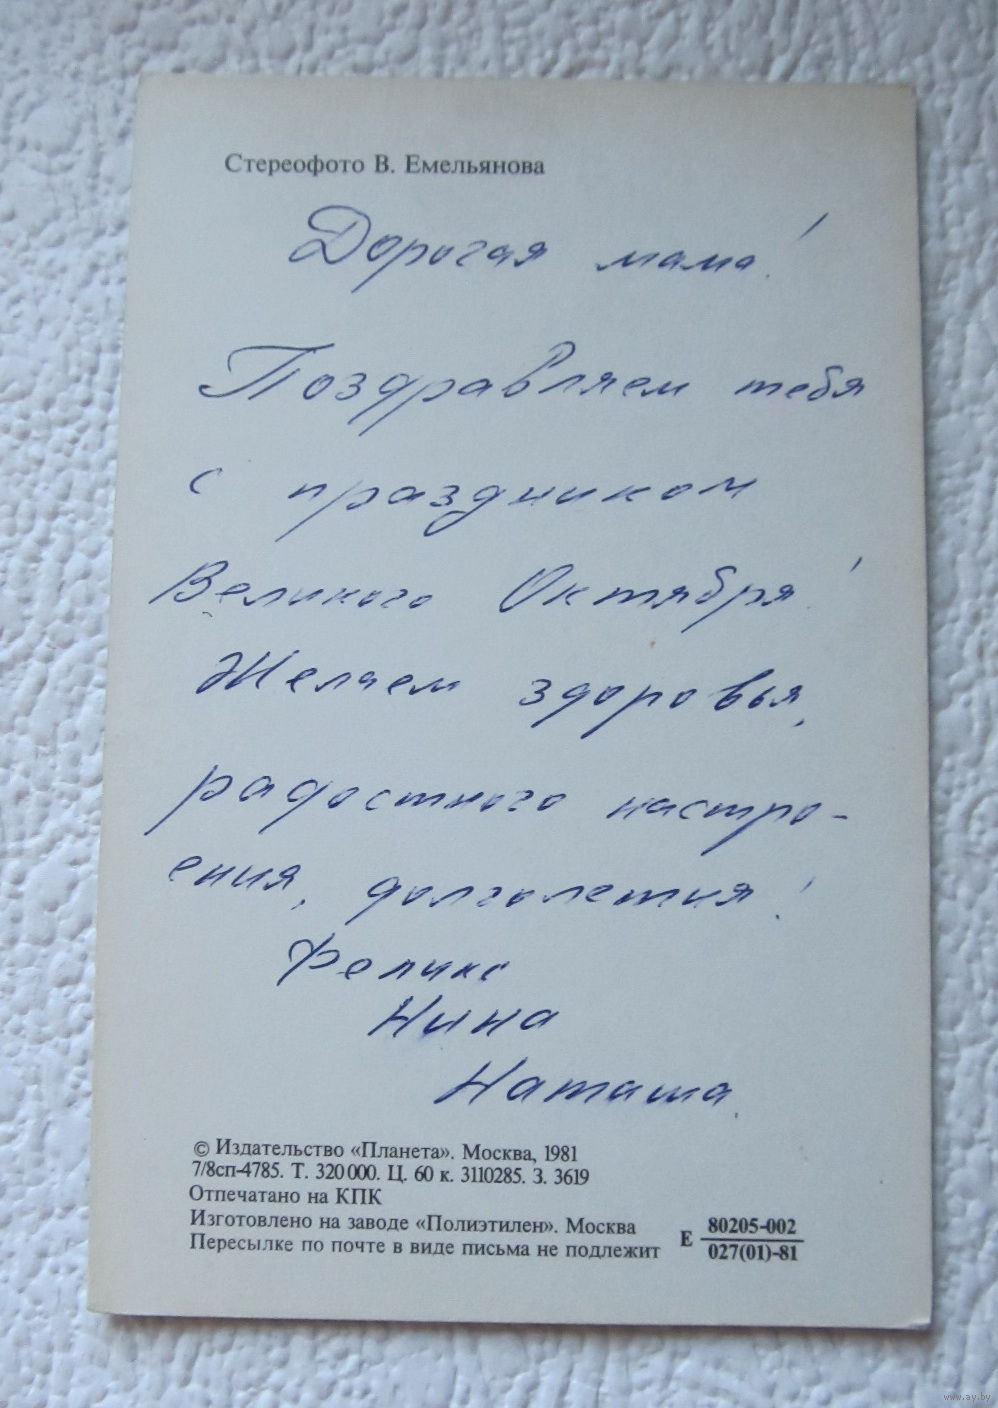 Стереофото В. Емельянова
Дорогая мама!
Поздравляем тебя
с праздником
Великого Октября!
Желаем здоровья,
радостного настро-
ения, долголетия!
Феликс
Нина
Наташа.
© Издательство «Планета». Москва, 1981
7/8сп-4785. Т. 320 000. Ц. 60 к. 3110285. З. 3619
Отпечатано на КПК
Изготовлено на заводе «Полиэтилен». Москва
Пересылке по почте в виде письма не подлежит
Е 80205-002
027(01)-81
www.ay.by